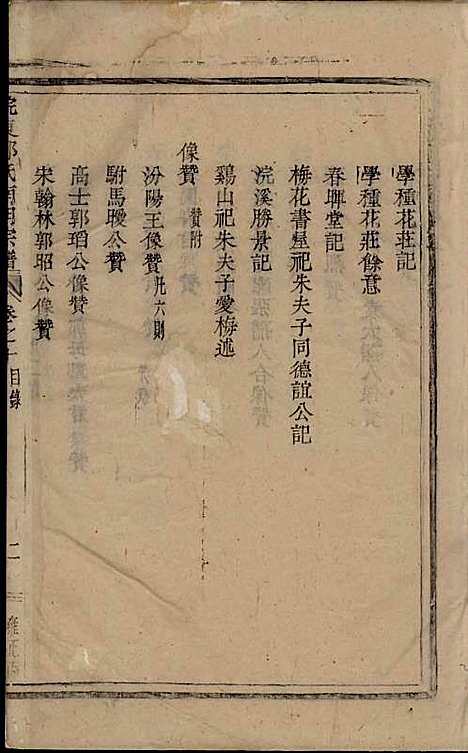 學種花莊記
學種花莊餘意
春暉堂記
梅花書屋祀朱夫子同德誼公記
浣溪勝景記
鷄山祀朱夫子愛梅述
像贊 贊附
汾陽王像贊 共六則
駙馬曖公贊
高士郭瑫公像贊
宋翰林郭昭公像贊
氏 宗譜 卷之一 目錄 二